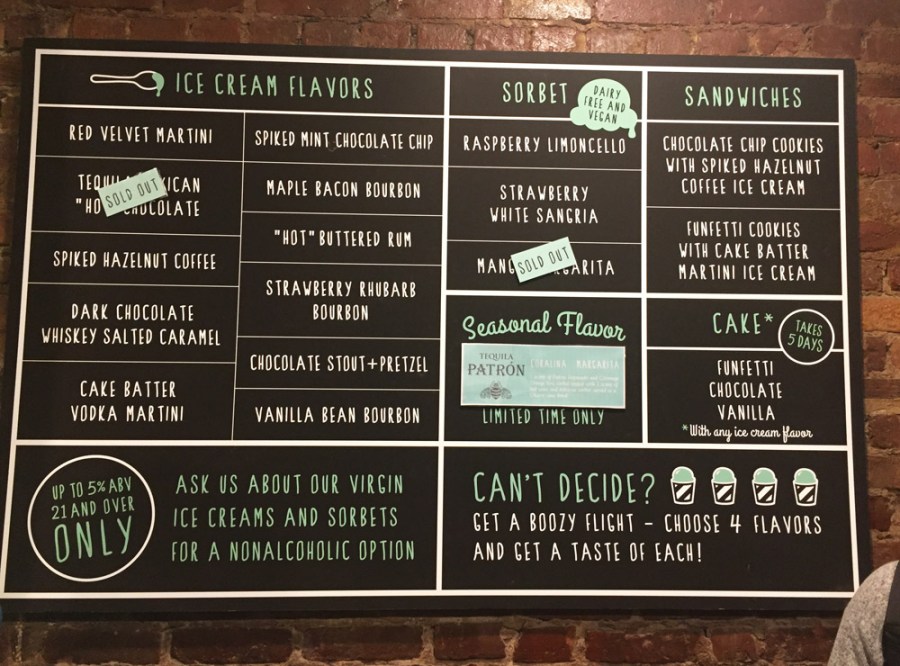 ICE CREAM FLAVORS
RED VELVET MARTINI
TEQUILA
SOLD OUT
"HOT" CHOCOLATE
SPIKED HAZELNUT COFFEE
DARK CHOCOLATE
WHISKEY SALTED CARAMEL
CAKE BATTER
VODKA MARTINI
SPIKED MINT CHOCOLATE CHIP
MAPLE BACON BOURBON
"HOT" BUTTERED RUM
STRAWBERRY RHUBARB
BOURBON
CHOCOLATE STOUT+PRETZEL
VANILLA BEAN BOURBON
SORBET
DAIRY
FREE AND
VEGAN
RASPBERRY LIMONCELLO
STRAWBERRY
WHITE SANGRIA
SOLD OUT
Seasonal Flavor
TEQUILA
PATRÓN
MARGARITA
LIMITED TIME ONLY
SANDWICHES
CHOCOLATE CHIP COOKIES
WITH SPIKED HAZELNUT
COFFEE ICE CREAM
FUNFETTI COOKIES
WITH CAKE BATTER
MARTINI ICE CREAM
CAKE*
TAKES
5 DAYS
FUNFETTI
CHOCOLATE
VANILLA
*With any ice cream flavor
UP TO 5% ABV
21 AND OVER
ONLY
ASK US ABOUT OUR VIRGIN
ICE CREAMS AND SORBETS
FOR A NONALCOHOLIC OPTION
CAN'T DECIDE?
GET A BOOZY FLIGHT - CHOOSE 4 FLAVORS
AND GET A TASTE OF EACH!